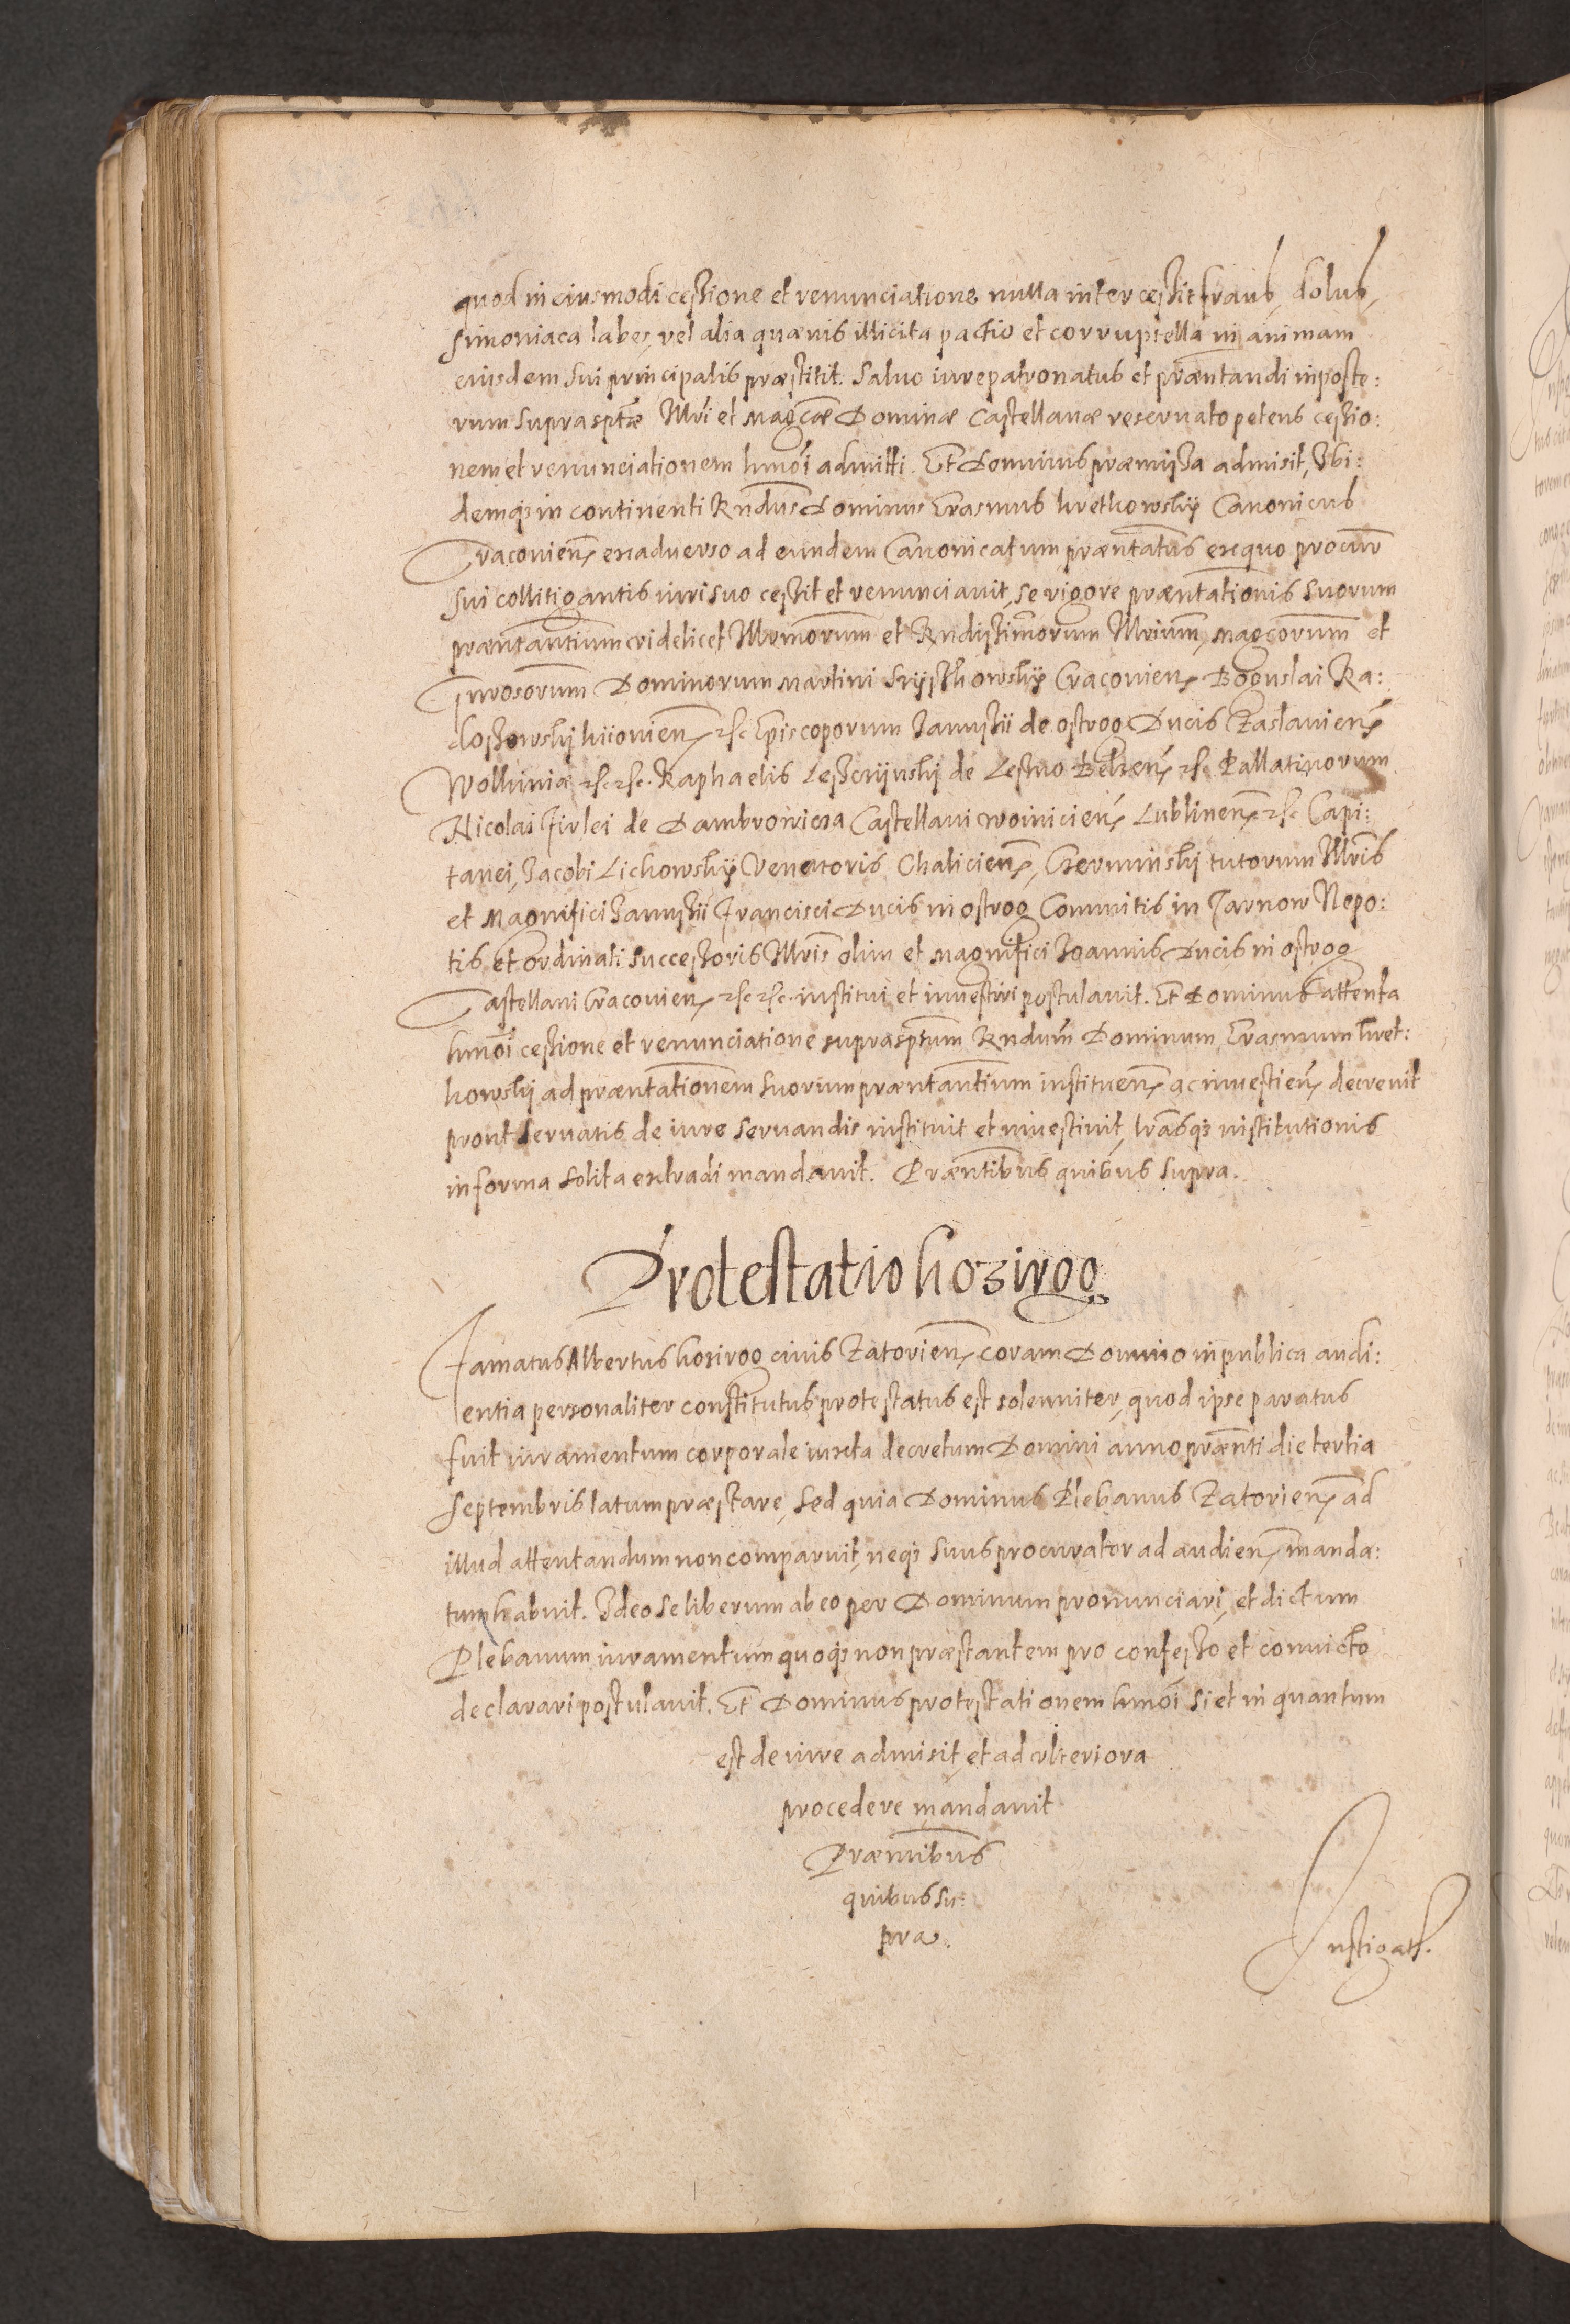 quod in eiusmodi cessione et renunciatione nulla intercessit fraus, dolus,
simoniaca labes, vel alia quaevis illicita pactio et corruptella in animam
eiusdem sui principalis praestitit. Saluo iurepatronatus et praentandi inposte:
rum suprasptae Illris et Magcae Dominae Castellanae reseruato petens cessio:
nem et renunciationem hmoi admitti. Et Dominus praemissa admisit, Vbi:
demqs in continenti Rndus Dominus Erasmus kretkowskÿ Canonicus
Cracouien, exaduerso ad eundem Canonicatum praentatus ex quo procur
sui collitigantis iuri suo cessit et renunciauit, se vigore praentationis suorum
praentantium videlicet Illrmorum et Rndissimorum Illrium, Magcorum et
Gnrosorum Dominorum Martini SzÿszkowskÿCracouien, Boguslai Ra:
doszowskÿ kiiouien, etc Episcoporum Janussii de ostrog Ducis Zaslauien
Wolliniae etc etc. Raphaelis Leszczÿnskÿ de Lesno Belzen etc. Pallatinorum
Nicolai Firlei de Dambrowicza Castellani woiniciem, Lublinen, etc Capi:
tanei, Jacobi Lichowskÿ Venatoris Chalicien, Czerminskÿ tutorum Illris
et Magnifici Janussii Francisci Ducis in ostrog Commitis in Tarnow Nepo:
tis, et ordinati successoris Illris olim et Magnifici Joannis Ducis in ostrog
Castellani Cracouien, etc etc. institui et inuestiri postulauit. Et Dominus attenta
hmoi cessione et renunciatione suprasptum Rndum Dominum Erasmum kret:
kowskÿ ad praentationem suorum praentantium instituen, ac inuestien, decreuit
prout seruatis de iure seruandis instituit et inuestiuit, lrasqs institutionis
in forma solita extradi mandauit. Praentibus quibus supra.
Protestatio kozirog
Famatus Albertus kozirog ciuis Zatorien, coram Domino in publica audi:
entia personaliter constitutus protestatus est solenniter, quod ipse paratus
fuit iuramentum corporale iuxta decretum Domini anno praenti die tertia
Septembris latum praestare, sed quia Dominus Plebanus Zatorien, ad
illud attentandum non comparuit, neqs suus procurator ad audien, manda:
tum habuit. Ideo se liberum ab eo per Dominum pronunciari, et dictum
Plebanum iuramentum quoqs non praestantem pro confesso et conuicto
declarari postulauit. Et Dominus protestationem hmoi si et in quantum
est de iure admisit, et ad vlteriora
procedere mandauit
Praentibus
quibus su:
pra.
Instigatr.